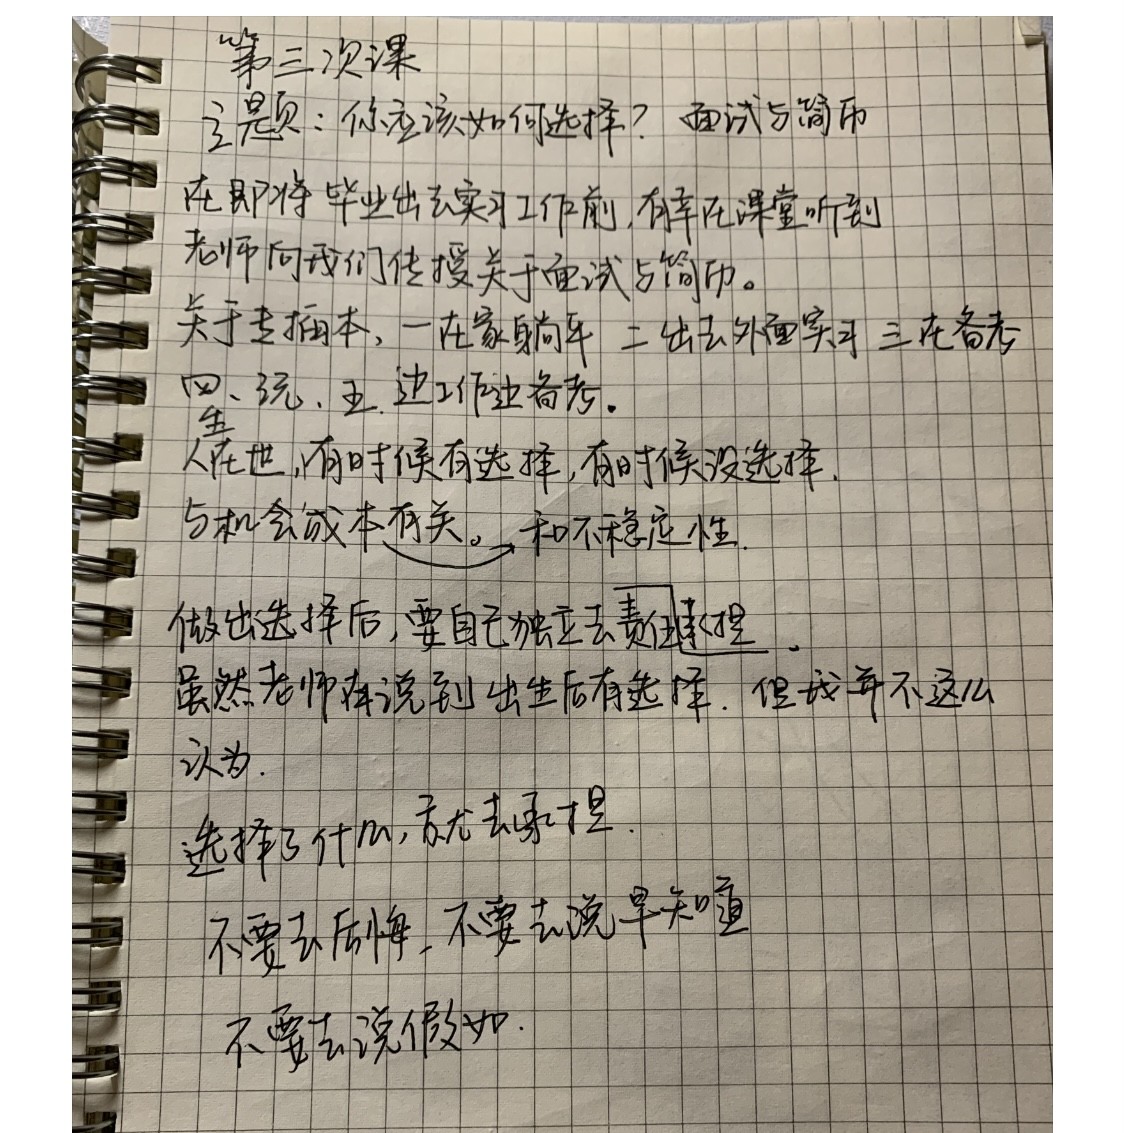 第三次课
主题：你应该如何选择？ 面试与简历
在即将毕业出去实习工作前，有幸在课堂听到
老师向我们传授关于面试与简历。
关于专插本，一在家躺平 二出去外面实习 三在备考
四、玩、五、边工作边备考。
人生在世，有时候有选择，有时候没选择.
与机会成本有关。→和不稳定性.
做出选择后，要自己独立去责任承担.
虽然老师有说到出生后有选择.但我并不这么
认为.
选择了什么，就去承担.
不要去后悔，不要去说早知道
不要去说假如.